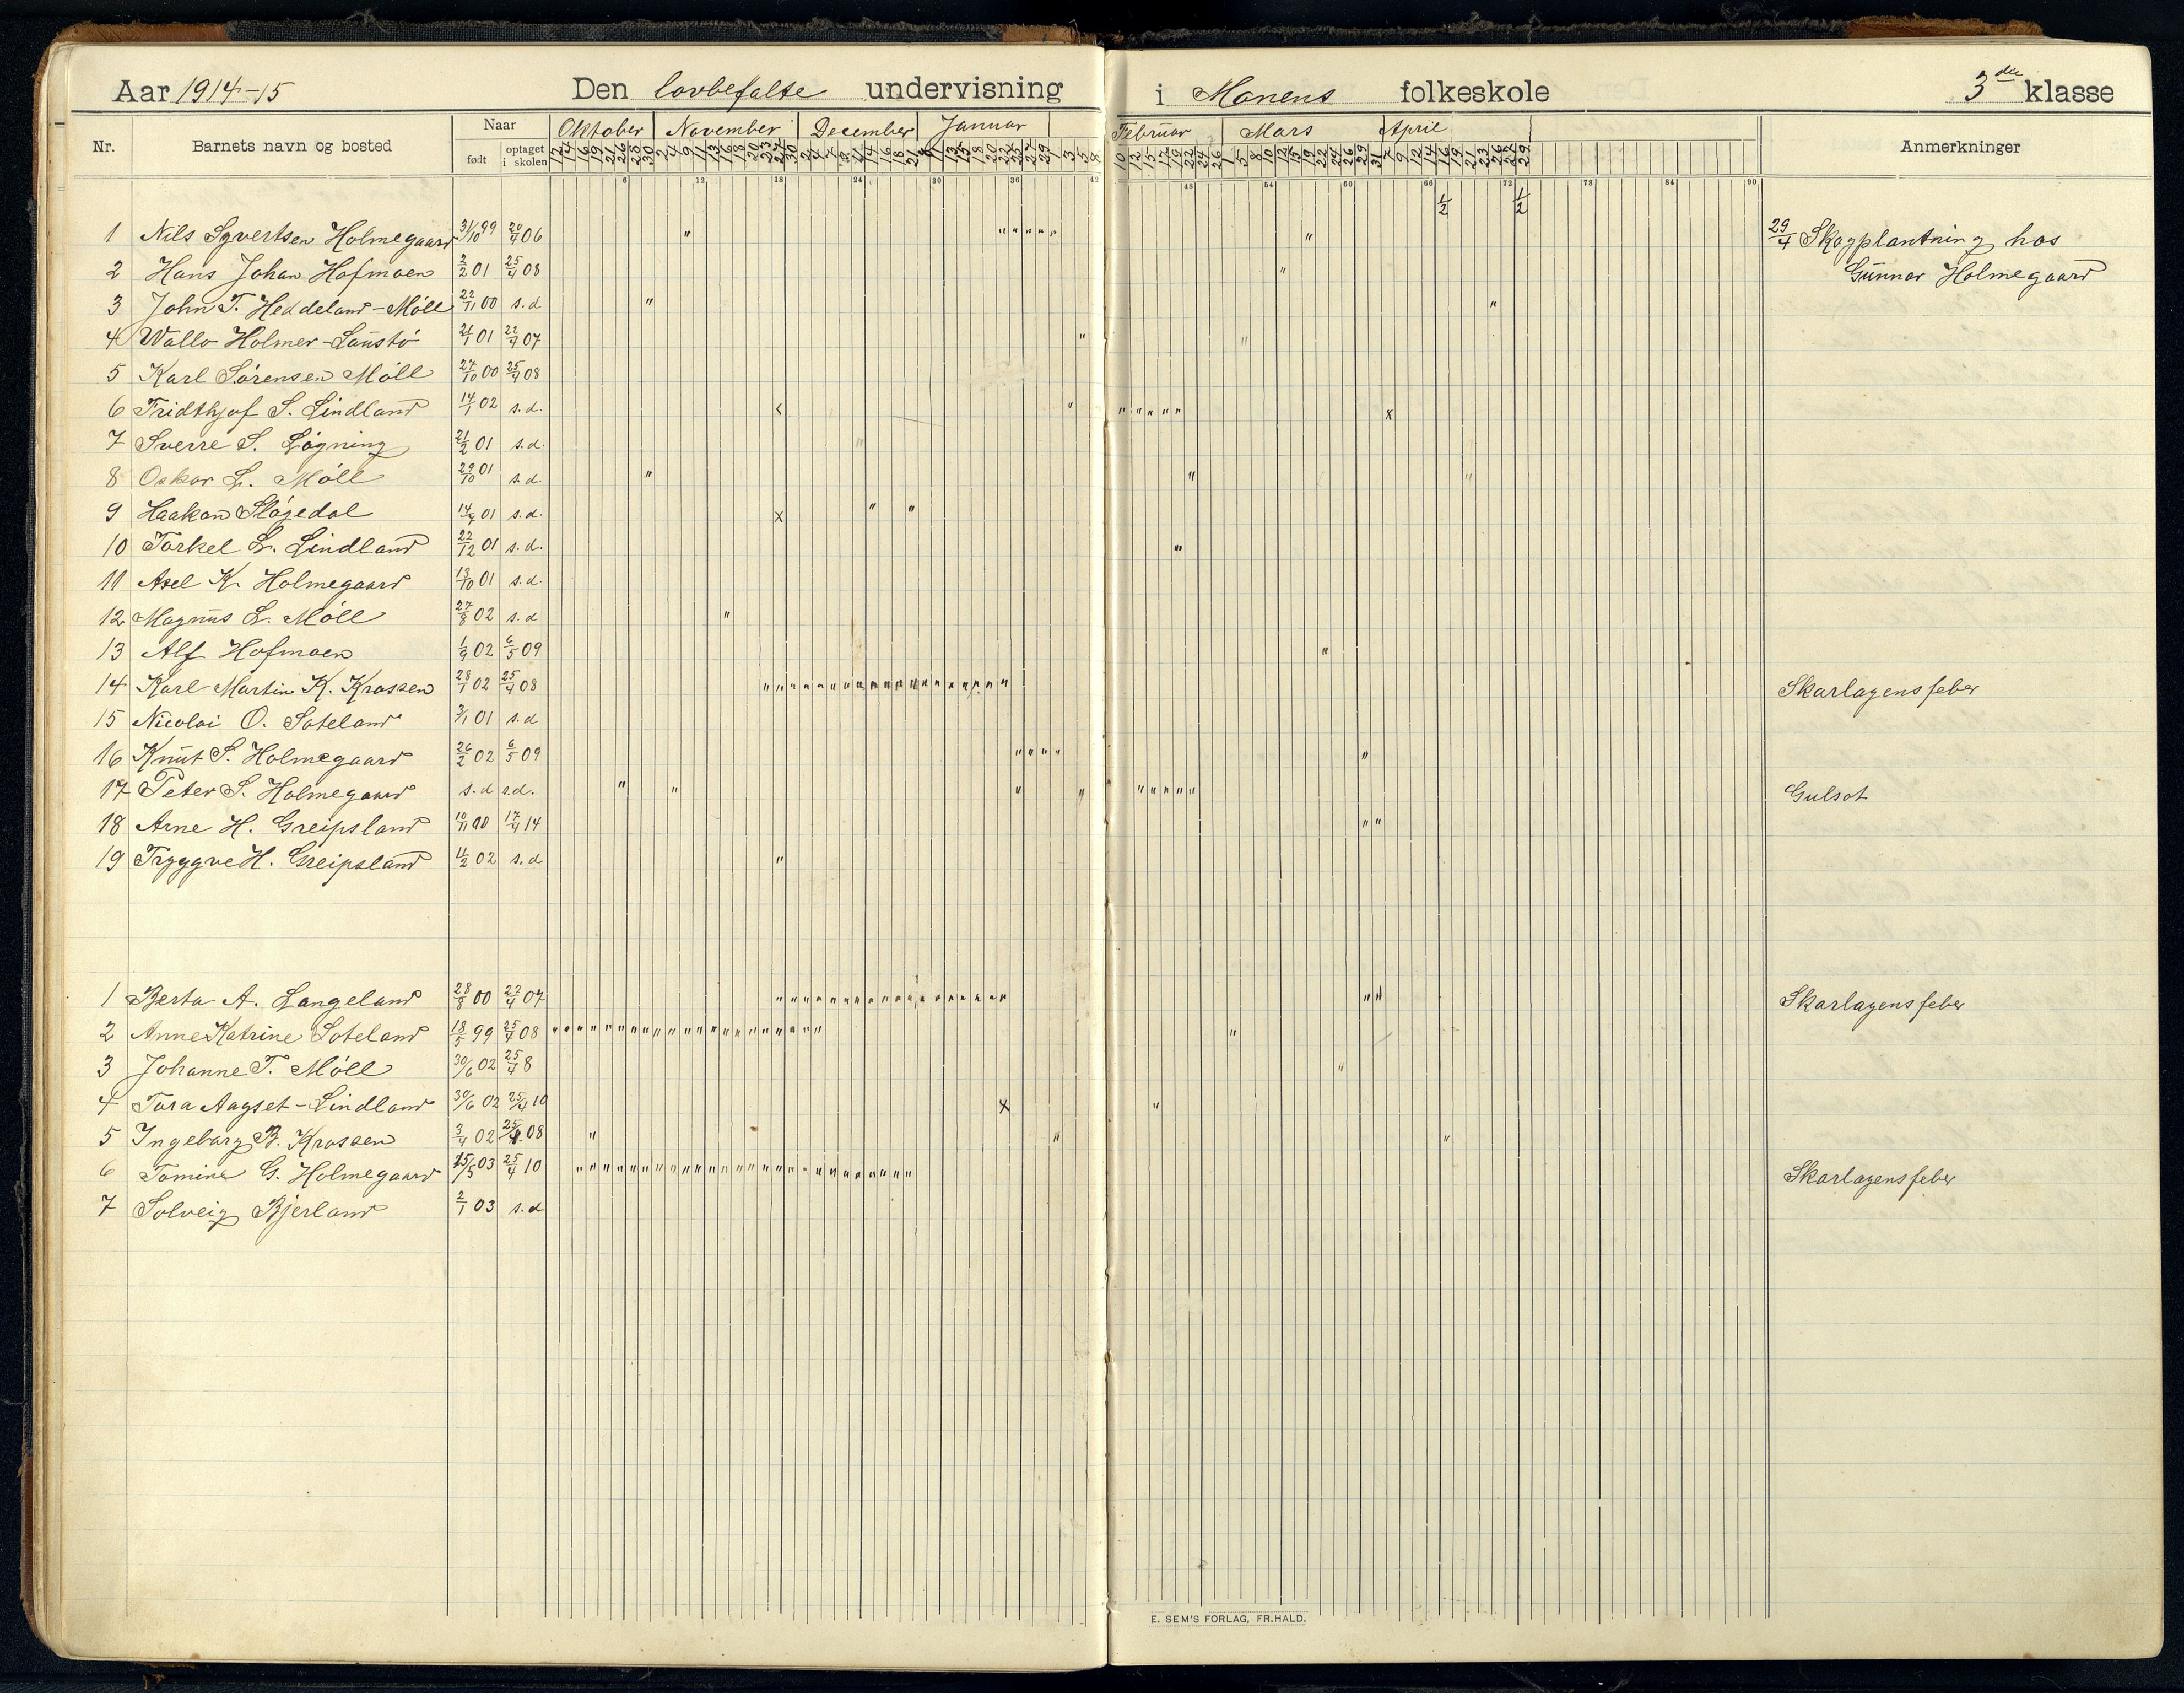 Aar 1914-15 Den lovbefalte undervisning i Monens folkeskole 3die klasse
Nr. Barnets navn og bosted Naar født optaget i skolen Oktober November December Januar Februar Mars April Anmerkninger
6 12 18 24 30 36 42 48 54 60 66 72 78 84 90
1/2 1/2
1 Nils Syvertsen Holmegaard 31/10 99 20/4 06 29/4 Skogplantning hos
2 Hans Johan Hofmoen 2/2 01 25/4 08 Gunnar Holmegaard
3 John T. Heddeland-Möll 22/11 00 s.d
4 Wallo Holmer-Laustö 21/1 01 22/4 07
5 Karl Sörensen Möll 27/10 00 25/4 08
6 Fridthjof S. Lindland 14/1 02 s.d.
7 Sverre S. Lögning 21/2 01 s.d.
8 Oskar L. Möll 29/10 01 s.d.
9 Haakon Slögedal 14/9 01 s.d.
10 Torkel L. Lindland 22/12 01 s.d.
11 Asel K. Holmegaard 13/10 01 s.d.
12 Magnus L. Möll 27/8 02 s.d
13 Alf Hofmoen 1/9 02 6/5 09
14 Karl Martin K. Krossen 28/1 02 25/4 08 Skarlagensfeber
15 Nicolai O. Soteland 3/1 01 s.d
16 Knut S. Holmegaard 26/2 02 6/5 09
17 Peter S. Holmegaard s.d s.d. Gulsot
18 Arne H. Greipsland 10/11 00 17/4 14
19 Tryggve H. Greipsland 4/2 02 s.d
1 Berta A. Langeland 28/8 00 22/4 07 Skarlagensfeber
2 Anne Katrine Soteland 18/5 99 25/4 08
3 Johanne T. Möll 30/6 02 25/4 8
4 Tora Aagset-Lindland 30/6 02 25/4 10
5 Ingeborg B. Krossen 3/4 02 25/4 08
6 Tomine G. Holmegaard 15/5 03 25/4 10 Skarlagensfeber
7 Solveig Bjerland 2/1 03 s.d
E. SEM'S FORLAG, FR.HALD.